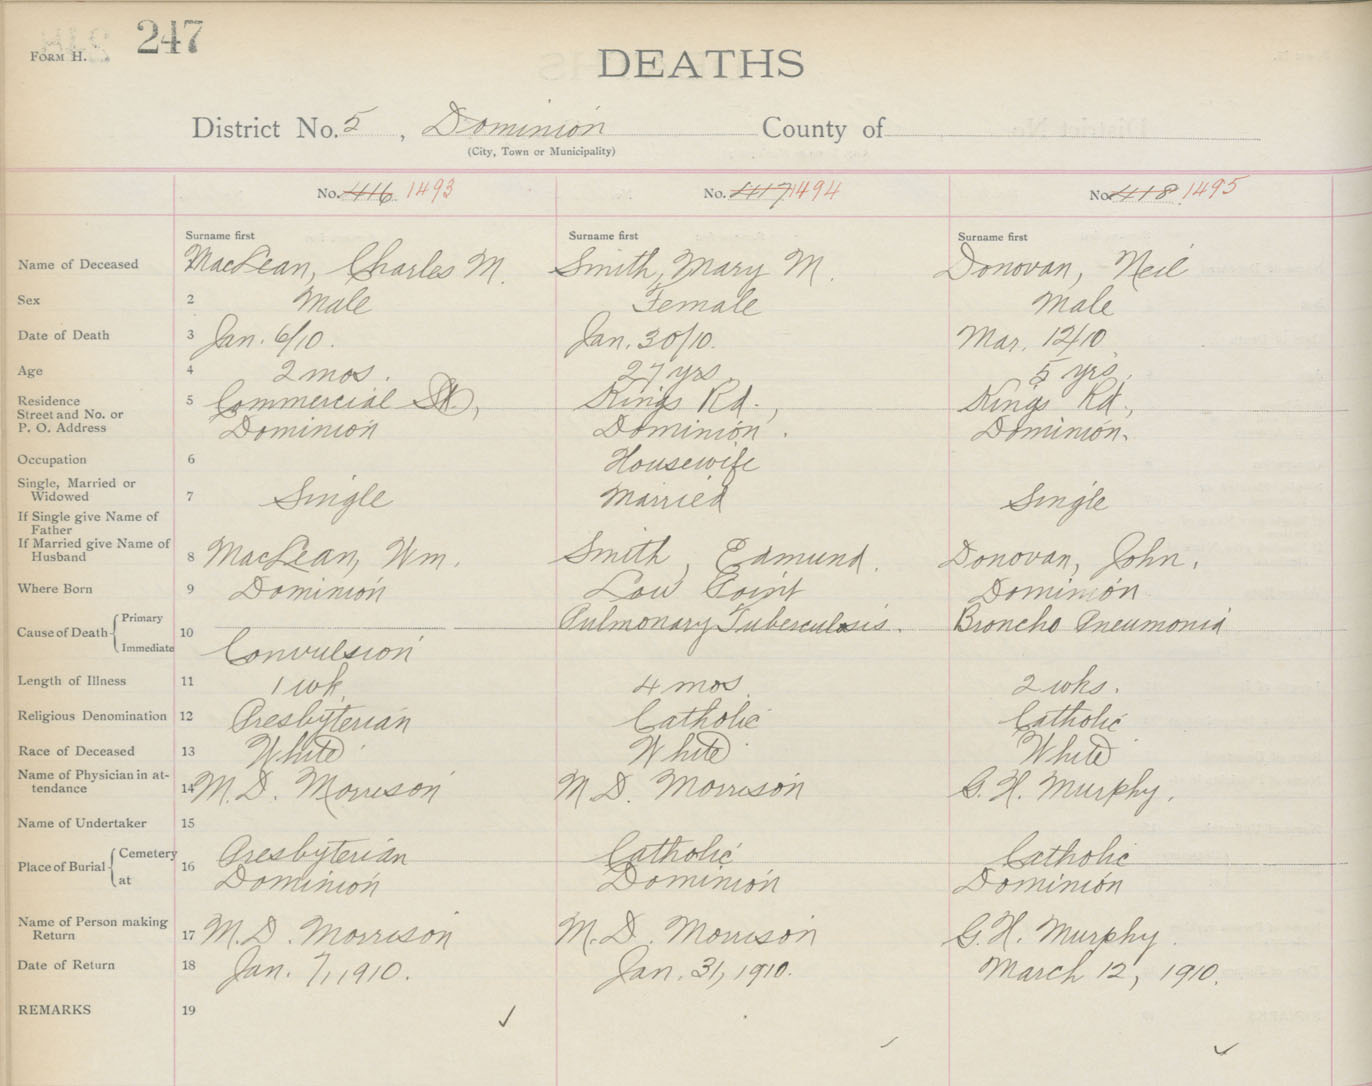 247
FORM H.
DEATHS
District No. 5, Dominion County of
(City, Town or Municipality)
No. 416 1493 No. 417 1494 No. 418 1495
Surname first Surname first Surname first
Name of Deceased MacLean, Charles M. Smith, Mary M. Donovan, Neil
Sex 2 Male Female Male
Date of Death 3 Jan. 6/10. Jan. 30/10. Mar. 12/10
Age 4 2 mos. 27 yrs. 5 yrs.
Residence 5 Commercial St., Kings Rd., Kings Rd.,
Street and No. or
P. O. Address Dominion Dominion. Dominion.
Occupation 6 Housewife
Single, Married or
Widowed 7 Single Married Single
If Single give Name of
Father
If Married give Name of
Husband 8 MacLean, Wm. Smith, Edmund. Donovan, John.
Where Born 9 Dominion Low Point Dominion
Cause of Death 10 Primary Pulmonary Tuberculosis. Broncho Pneumonia
Immediate Convulsion
Length of Illness 11 1 wk. 4 mos. 2 wks.
Religious Denomination 12 Presbyterian Catholic Catholic
Race of Deceased 13 White White White
Name of Physician in at-
tendance 14 M. D. Morrison M. D. Morrison G. H. Murphy.
Name of Undertaker 15
Place of Burial 16 Cemetery Presbyterian Catholic Catholic
at Dominion Dominion Dominion
Name of Person making
Return 17 M. D. Morrison M. D. Morrison G. H. Murphy.
Date of Return 18 Jan. 7, 1910. Jan. 31, 1910. March 12, 1910.
REMARKS 19